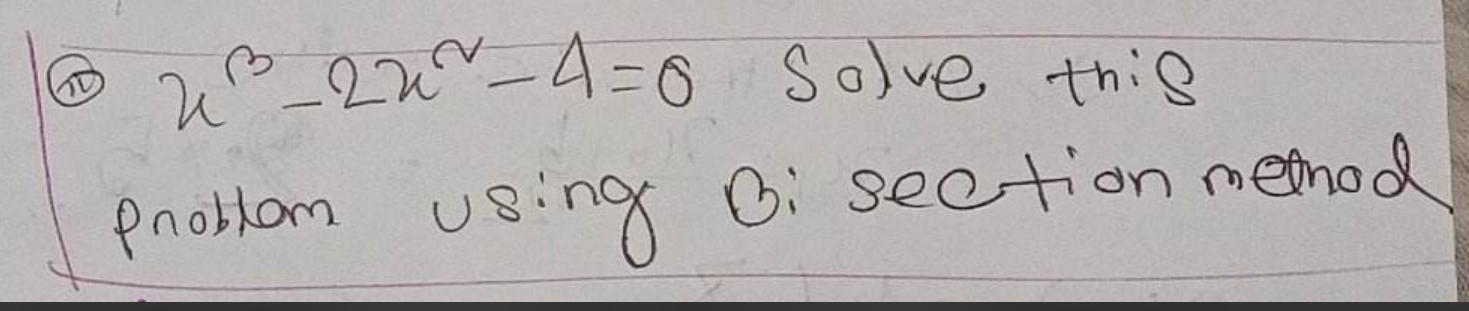 (iv) x³ - 2x² - 4 = 0 Solve this
problem using Bi section method